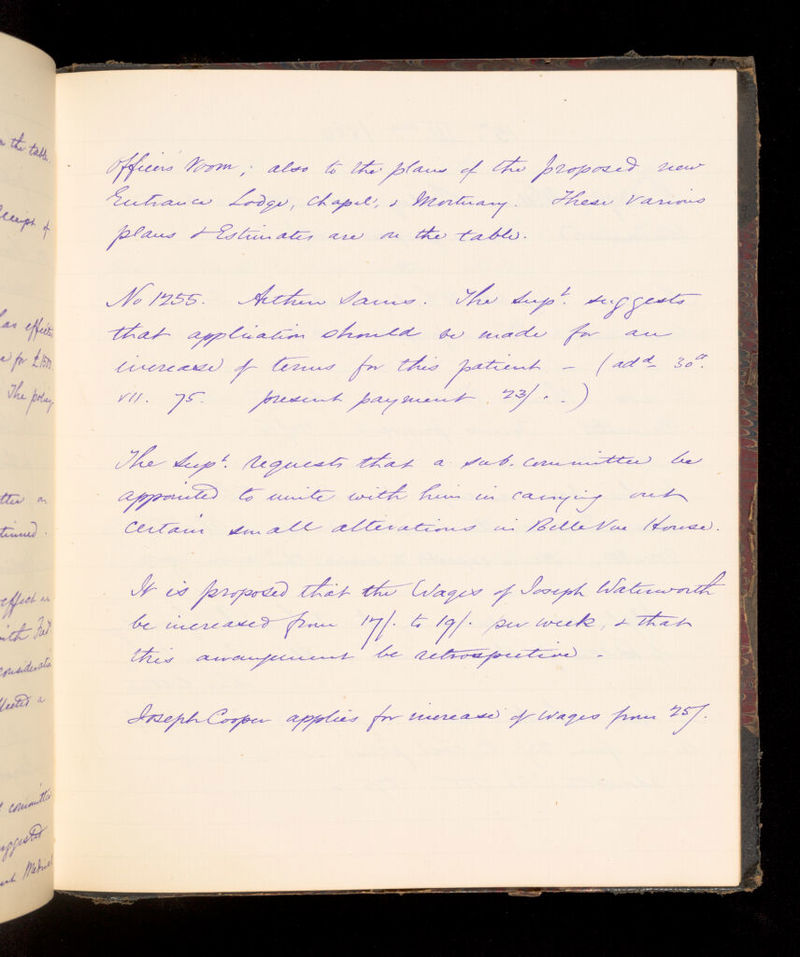 n the table.
Receipt of
has effected
e for £1500
The policy
ttee on
tinued.
effect an
with Fred
consideratio
llected a
committee
uggested
Medical
Officers' Room; also to the plans of the proposed new
Entrance Lodge, Chapel, & Mortuary. These various
plans & Estimates are on the table.
No 1255. Arthur Sams. The Supt. suggests
that application should be made for an
increase of terms for this patient – (add. 30th.
VII. 75. present payment 23/. . )
The Supt. requests that a sub. committee be
appointed to unite with him in carrying out
certain small alterations in Belle Vue House.
It is proposed that the Wages of Joseph Waterworth
be increased from 17/. to 19/. per week, & that
this arrangement be retrospective.
Joseph Cooper applies for increase of wages from 25/.